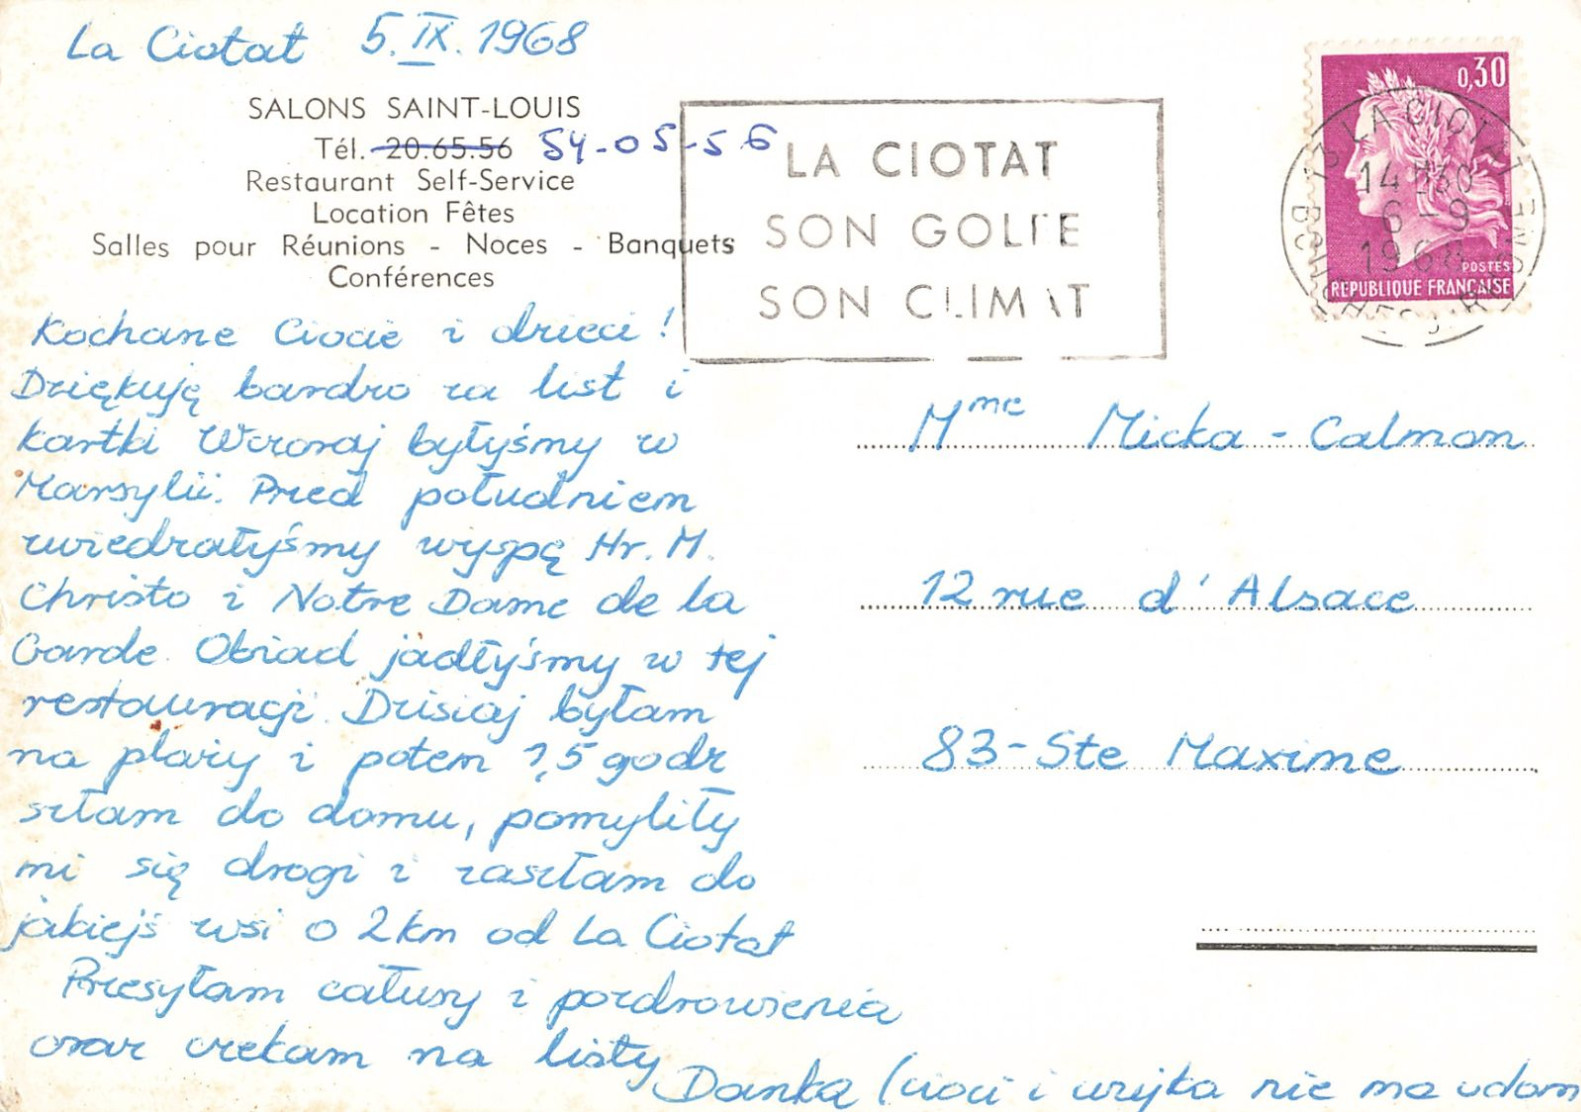 La Ciotat 5.IX.1968
SALONS SAINT-LOUIS
Tél. 20.65.56 54-05-56
Restaurant Self-Service
Location Fêtes
Salles pour Réunions - Noces - Banquets
Conférences
Kochane Ciocie i dzieci!
Dziękuję bardzo za list i
kartki Wczoraj byłyśmy w
Marsylii. Przed południem
zwiedzałyśmy wyspę Hr. M.
Christo i Notre Dame de la
Garde. Obiad jadłyśmy w tej
restauracji. Dzisiaj byłam
na plaży i potem 1,5 godz
szłam do domu, pomyliły
mi się drogi i zaszłam do
jakiejś wsi o 2 km od La Ciotat
Przesyłam całusy i pozdrowienia
oraz czekam na listy
Danka (cioci i wujka nie ma w dom
LA CIOTAT
SON GOLFE
SON CLIMAT
0,30
POSTES
REPUBLIQUE FRANÇAISE
13 LA CIOTAT
14H30
6-9
1968
BOUCHES DU RHONE
Mme Micka-Calmon
12 rue d'Alsace
83-Ste Maxime